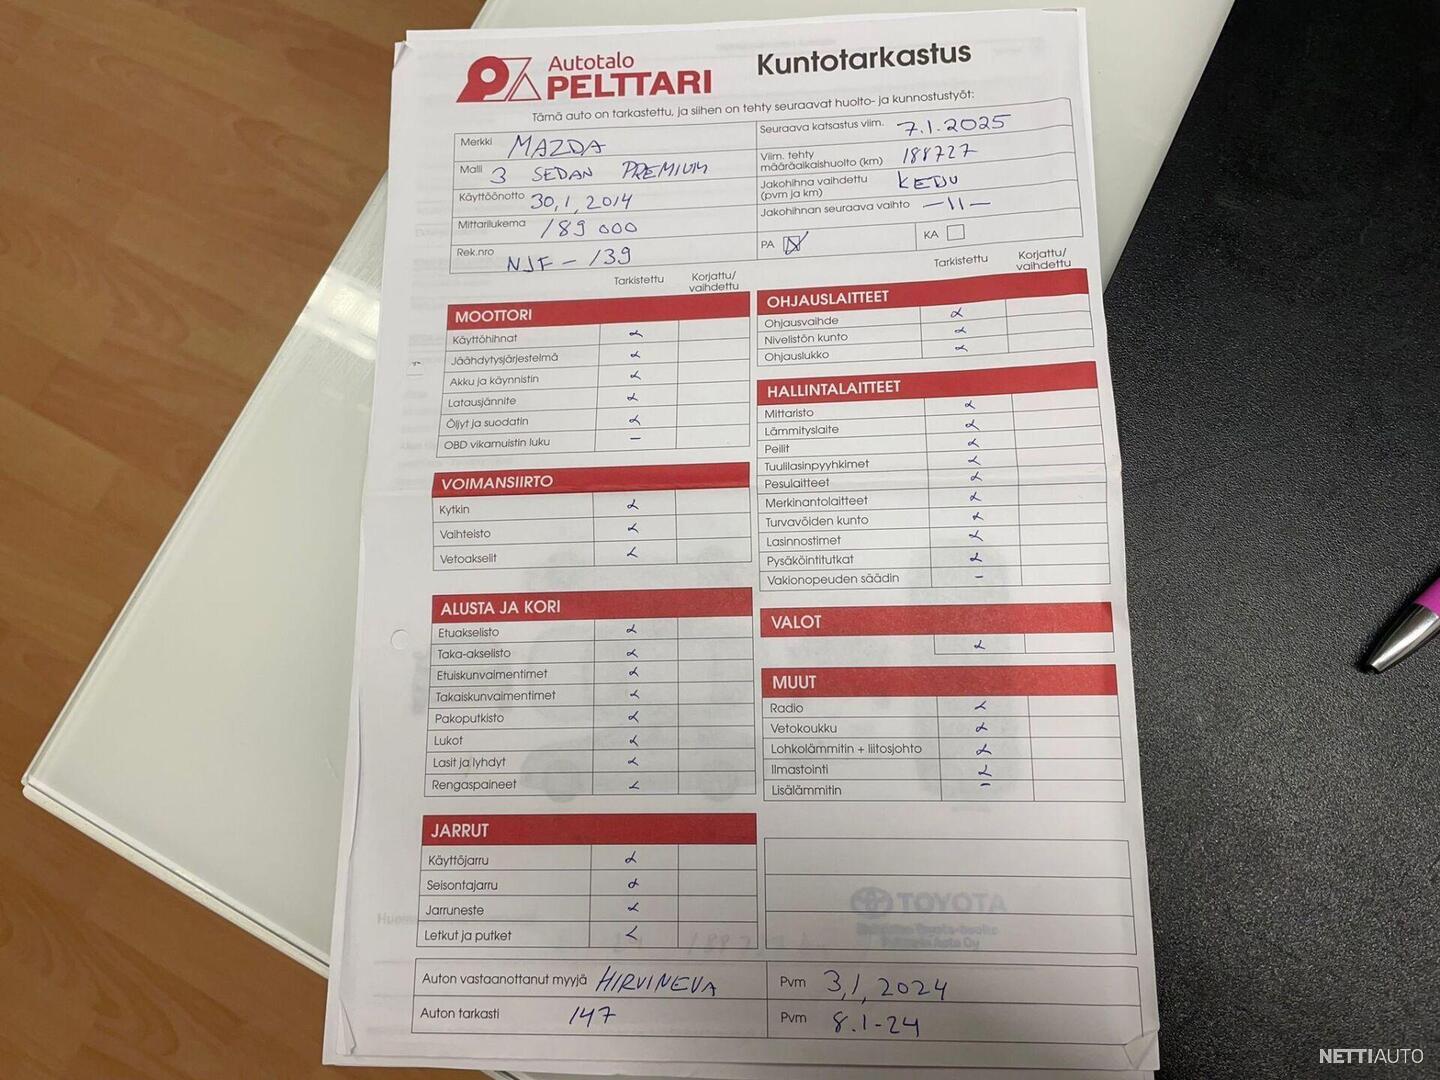 Autotalo
PELTTARI
Kuntotarkastus
Tämä auto on tarkastettu, ja siihen on tehty seuraavat huolto- ja kunnostustyöt:
Merkki MAZDA
Malli 3 SEDAN PREMIUM
Käyttöönotto 30,1,2014
Mittarilukema 189 000
Rek.nro NJF - 139
Seuraava katsastus viim. 7.1.2025
Viim. tehty
määräaikaishuolto (km) 188727
Jakohihna vaihdettu
(pvm ja km) KETJU
Jakohihnan seuraava vaihto —11—
PA
KA
Tarkistettu Korjattu/
vaihdettu
MOOTTORI
Käyttöhihnat
Jäähdytysjärjestelmä
Akku ja käynnistin
Latausjännite
Öljyt ja suodatin
OBD vikamuistin luku –
VOIMANSIIRTO
Kytkin
Vaihteisto
Vetoakselit
ALUSTA JA KORI
Etuakselisto
Taka-akselisto
Etuiskunvaimentimet
Takaiskunvaimentimet
Pakoputkisto
Lukot
Lasit ja lyhdyt
Rengaspaineet
JARRUT
Käyttöjarru
Seisontajarru
Jarruneste
Letkut ja putket
Tarkistettu Korjattu/
vaihdettu
OHJAUSLAITTEET
Ohjausvaihde
Nivelistön kunto
Ohjauslukko
HALLINTALAITTEET
Mittaristo
Lämmityslaite
Peilit
Tuulilasinpyyhkimet
Pesulaitteet
Merkinantolaitteet
Turvavöiden kunto
Lasinnostimet
Pysäköintitutkat
Vakionopeuden säädin –
VALOT
MUUT
Radio
Vetokoukku
Lohkolämmitin + liitosjohto
Ilmastointi
Lisälämmitin –
TOYOTA
Auton vastaanottanut myyjä HIRVINEVA
Pvm 3,1,2024
Auton tarkasti 147
Pvm 8.1-24
NETTIAUTO